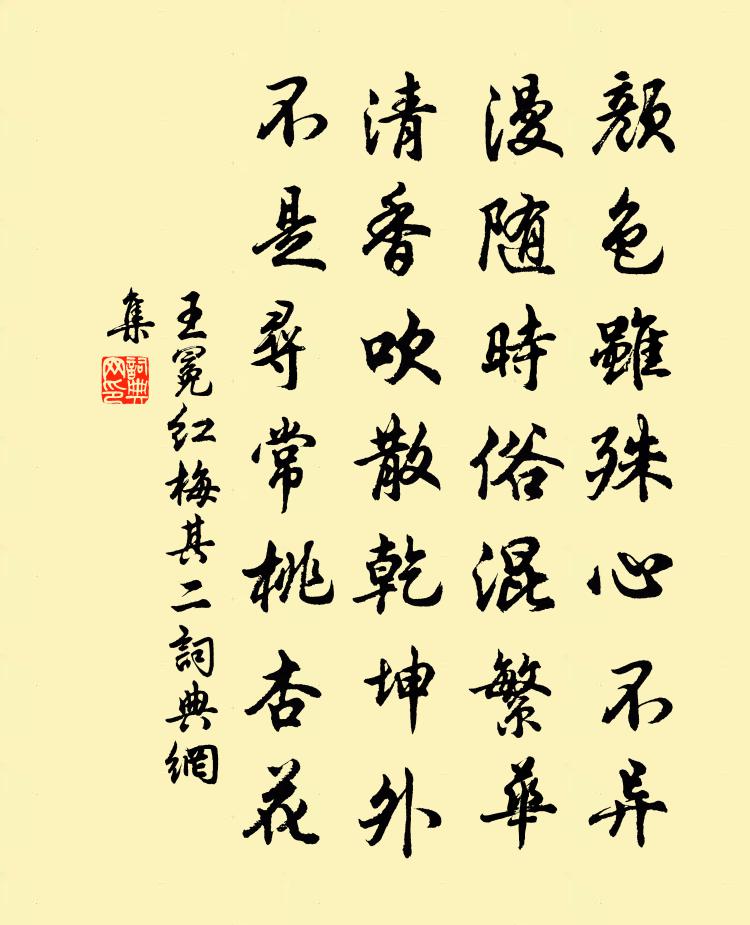 顔色雖殊心不异
漫随時俗混繁華
清香吹散乾坤外
不是尋常桃杏花
王冕红梅其二詞典網
集
詞典网印